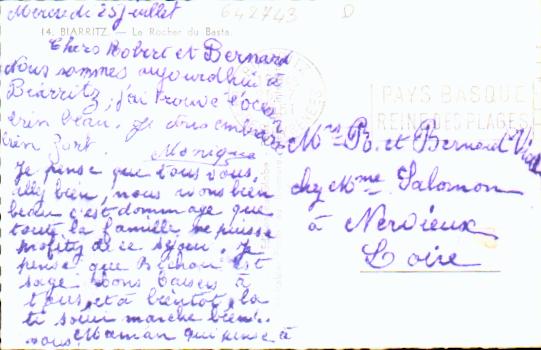 Mercredi 25 juillet
642743
D
14. BIARRITZ. - Le Rocher du Basta.
Chers Robert et Bernard
Nous sommes aujourdhui à
Biarritz, j'ai trouvé l'océ
bien beau. Je vous embrasse
bien fort.
Monique
Je pense que tous vous
allez bien, nous avons bien
beau c'est dommage que
toute la famille ne puisse
profiter de ce séjour. Je
pense que Bichou est
sage bons baisers à
tous, et à bientôt, la
ti soeur marche bien.
vous Maman qui pense à
PAYS BASQUE
REINE DES PLAGES
Mrs R. et Bernard
chez Mme Salomon
à Nervieux
Loire